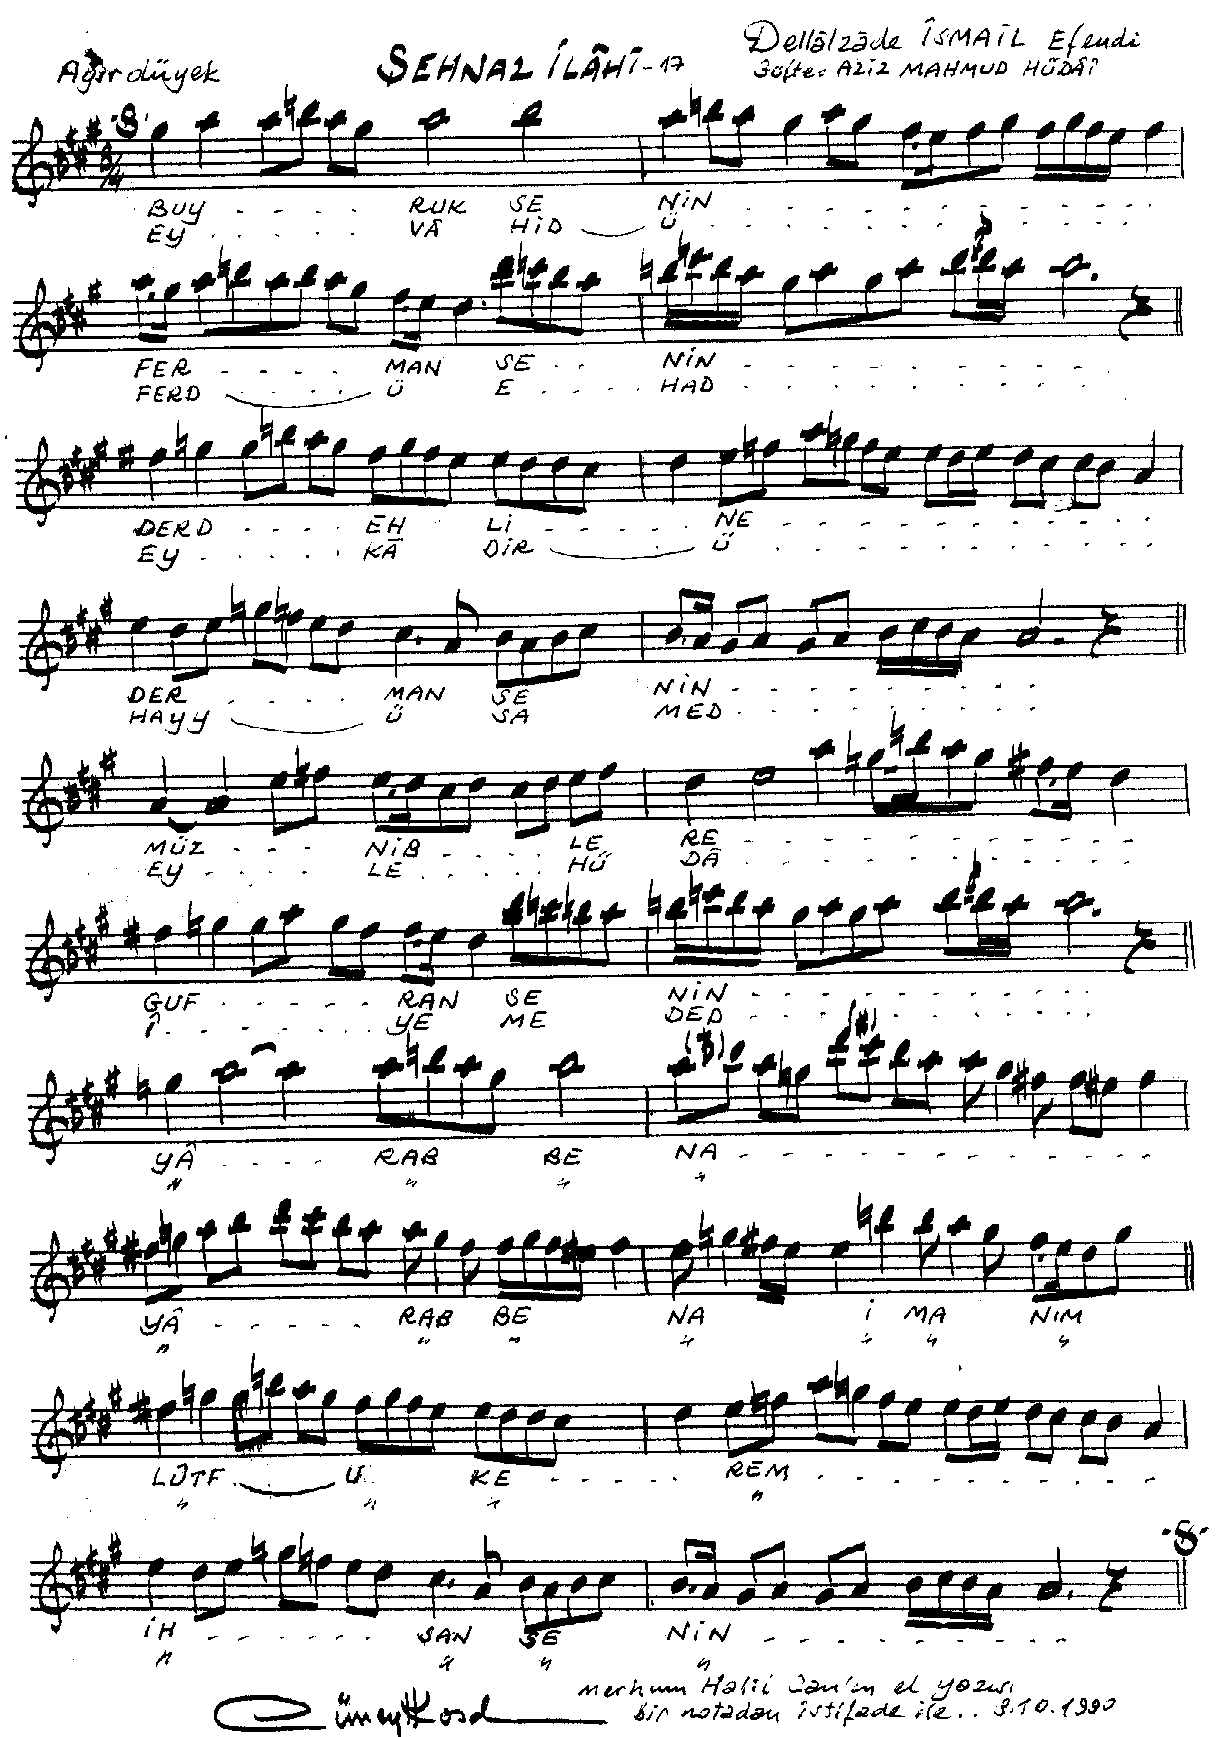 Ağırdüyek ŞEHNAZ İLÂHİ-17 Dellâlzâde İSMAİL Efendi
Güfte: AZİZ MAHMUD HÜDÂÎ
8/4
BUY - - - - RUK SE NİN - - - - - - - - -
EY . . . . . VÂ HİD Ü . . . . . . . . .
FER - - - - MAN SE - - NİN - - - - - - - - -
FERD Ü E . . . . HAD . . . . . . . . .
DERD - - - - EH LI - - - - NE - - - - - - - - -
EY . . . . KÂ DİR Ü . . . . . . . . .
DER - - - - MAN SE NİN - - - - - - - -
HAYY Ü SA MED . . . . . . . .
MÜZ - - - NİB - - - LE RE - - - - - - - - -
EY . . . . LE . . . . HÜ DÂ . . . . . . . . .
GUF - - - - - RAN SE NİN - - - - - - - -
Î . . . . . . YE ME DED . . . . . . . .
YÂ - - - - RAB BE NA - - - - - - - - -
" " " "
YÂ - - - - - RAB BE NA İ MA NIM
" " " " " " "
LÛTF U KE - - - - - REM - - - - - - - -
" " " "
İH - - - - - - SAN SE NİN - - - - - - -
" " " "
Cüneyt Kosal merhum Halil Can'ın el yazısı
bir notadan istifade ile.. 9.10.1990